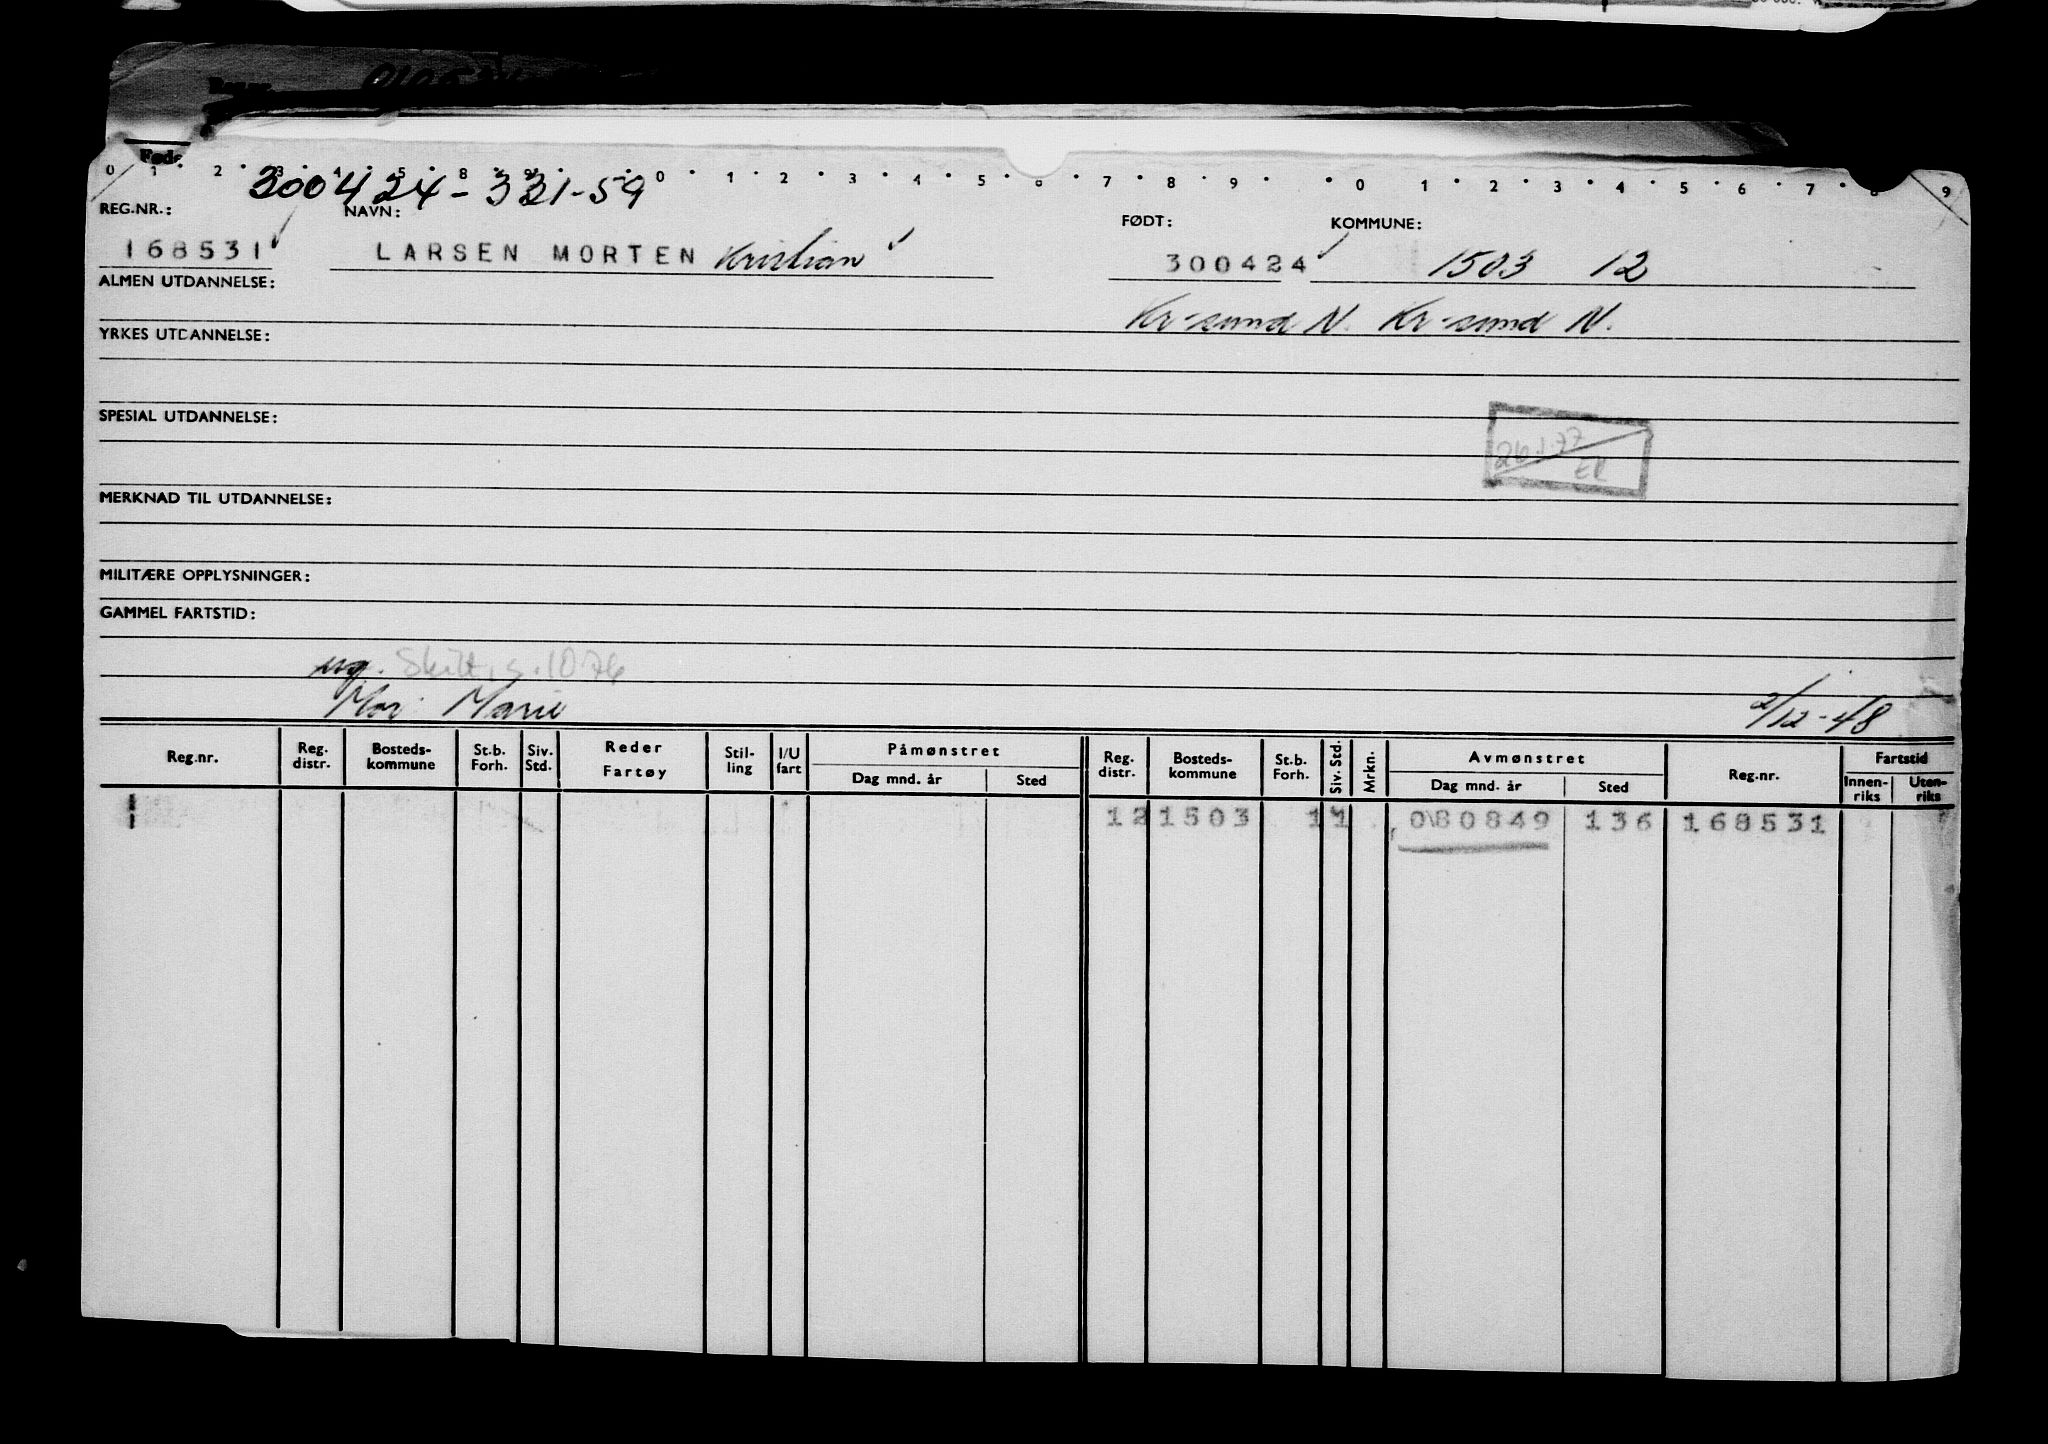 Født
0 1 2 3 4 5 8 9 0 1 2 3 4 5 6 7 8 9 0 1 2 3 4 5 6 7 8 9
300424-331-59
REG.NR.: NAVN: FØDT: KOMMUNE:
168531 LARSEN MORTEN Kristian 300424 1503 12
ALMEN UTDANNELSE:
Kr-sund N. Kr-sund N.
YRKES UTDANNELSE:
SPESIAL UTDANNELSE:
26.1.77
ER
MERKNAD TIL UTDANNELSE:
MILITÆRE OPPLYSNINGER:
GAMMEL FARTSTID:
ug. Skilt, s. 1076
Mor: Marie 2/12-48
Reg.nr. Reg. distr. Bosteds-kommune St.b. Forh. Siv. Std. Reder Fartøy Stil-ling I/U fart Påmønstret Dag mnd. år Sted Reg. distr. Bosteds-kommune St.b. Forh. Siv. Std. Mrkn. Avmønstret Dag mnd. år Sted Reg.nr. Fartstid Innen-riks Uten-riks
12 1503 1 1 080849 136 168531